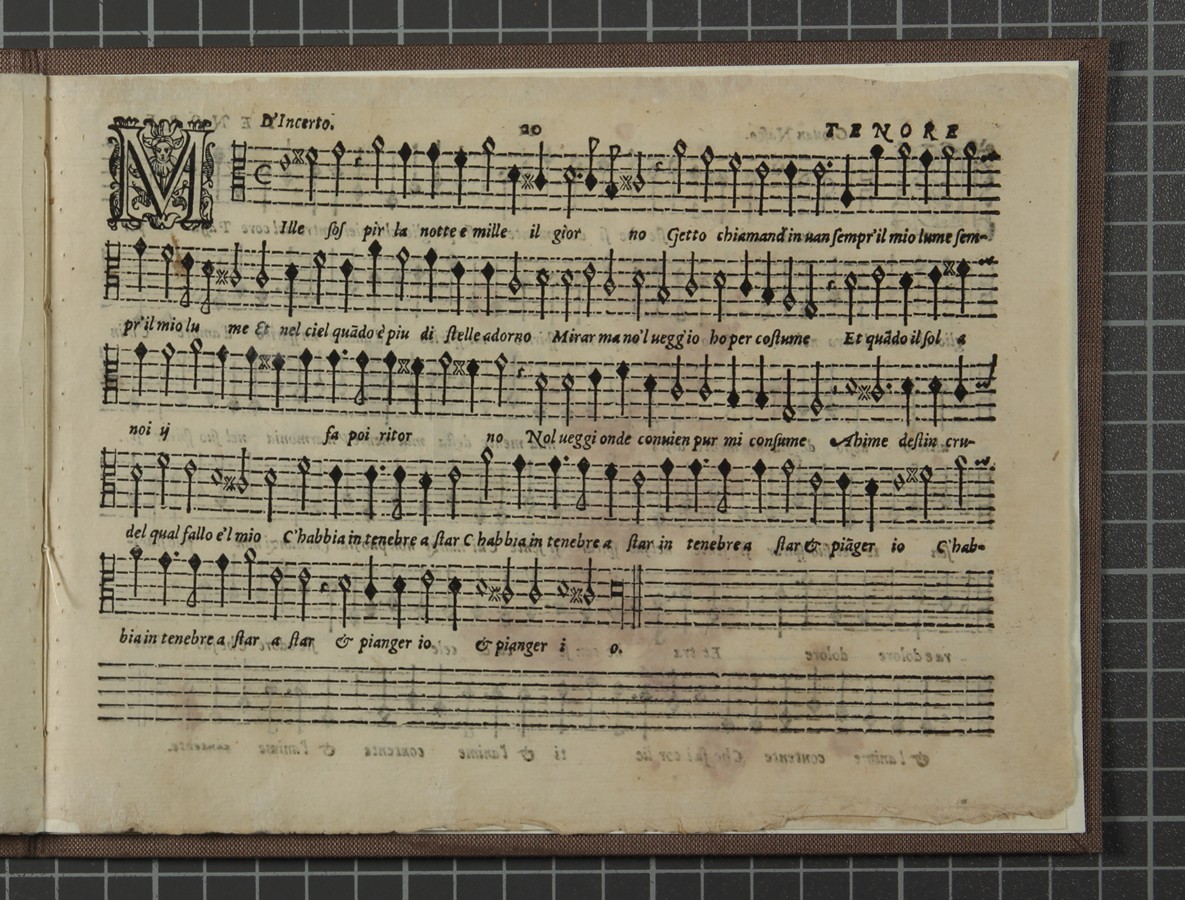 D'Incerto. 20 TENORE
MIlle sos pir la notte e mille il gior no Getto chiamand'in uan sempr'il mio lume sem-
pr'il mio lu me Et nel ciel quãdo è piu di stelle adorno Mirar ma no'l uegg'io ho per costume Et quãdo il sol a
noi ij fa poi ritor no Nol ueggi onde conuien pur mi consume Ahime destin cru-
del qual fallo e'l mio C'habbia in tenebre a star C habbia in tenebre a star in tenebre a star & piãger io C'hab-
bia in tenebre a star a star & pianger io & pianger i o.